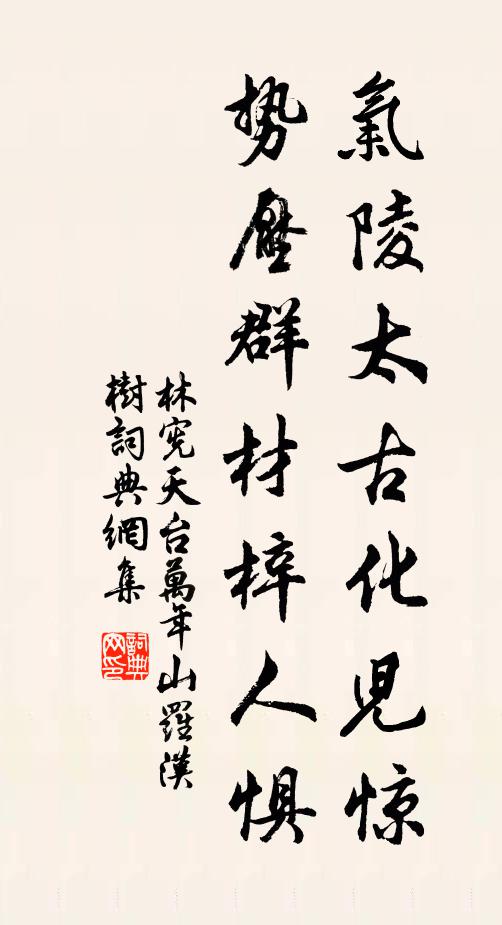 氣陵太古化兒惊
势壓群材梓人惧
林宪天台萬年山羅漢
樹詞典網集
詞典网印